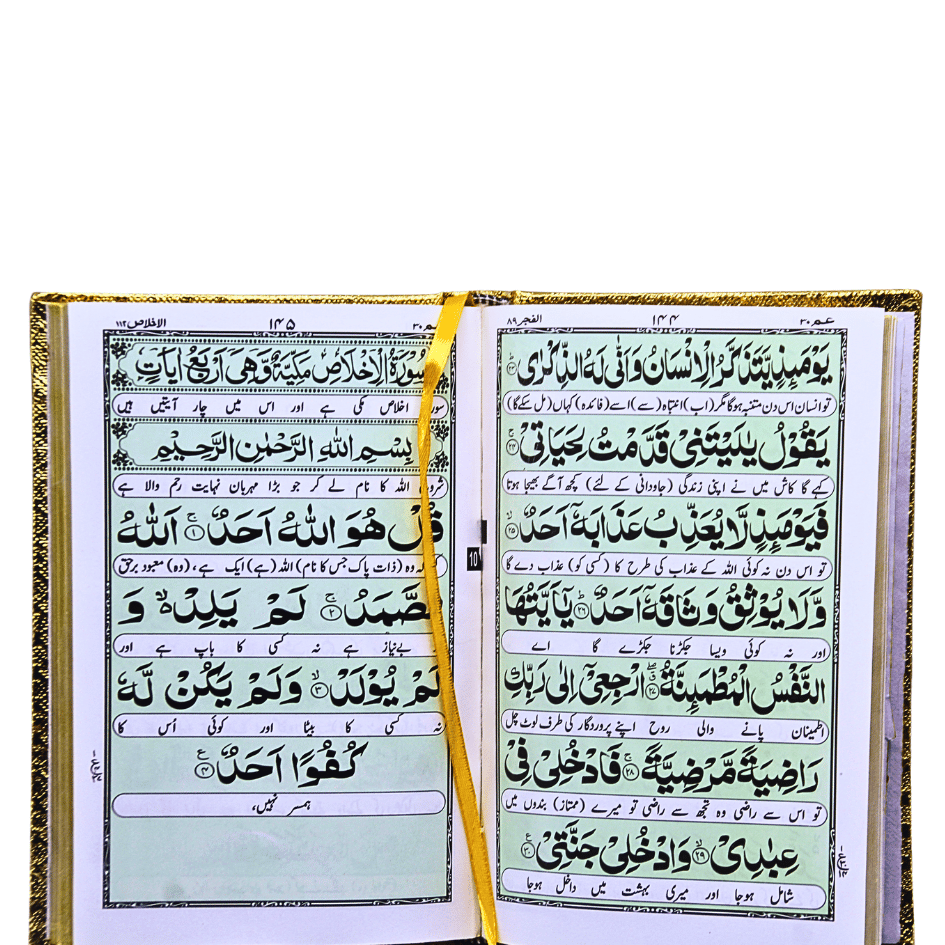 عـم ۳۰
۱۴۴
الفجر ۸۹
يَوْمَئِذٍ يَّتَذَكَّرُ الْاِنْسَانُ وَاَنّٰى لَهُ الذِّكْرٰى ۲۳
تو انسان اس دن متنبہ ہوگا مگر (اب) انتباہ (سے) اسے (فائدہ) کہاں (مل سکے گا)
يَقُوْلُ يٰلَيْتَنِىْ قَدَّمْتُ لِحَيَاتِىْ ۲۴
کہے گا کاش میں نے اپنی زندگی (جاودانی کے لئے) کچھ آگے بھیجا ہوتا
فَيَوْمَئِذٍ لَّا يُعَذِّبُ عَذَابَهٗۤ اَحَدٌ ۲۵
تو اس دن نہ کوئی اللہ کے عذاب کی طرح کا (کسی کو) عذاب دے گا
وَّلَا يُوْثِقُ وَثَاقَهٗۤ اَحَدٌ ۲۶ يٰۤاَيَّتُهَا
اور نہ کوئی ویسا جکڑنا جکڑے گا اے
النَّفْسُ الْمُطْمَئِنَّةُ ۲۷ ارْجِعِىْۤ اِلٰى رَبِّكِ
اطمینان پانے والی روح اپنے پروردگار کی طرف لوٹ چل
رَاضِيَةً مَّرْضِيَّةً ۲۸ فَادْخُلِىْ فِىْ
تو اس سے راضی وہ تجھ سے راضی تو میرے (ممتاز) بندوں میں
عِبٰدِىْ ۲۹ وَادْخُلِىْ جَنَّتِىْ ۳۰
شامل ہوجا اور میری بہشت میں داخل ہوجا
۳۰
۱۴۵
الاخلاص ۱۱۲
سُوْرَةُ الْاِخْلَاصِ مَكِّيَّةٌ وَّهِىَ اَرْبَعُ اٰيَاتٍ
سورۂ اخلاص مکی ہے اور اس میں چار آیتیں ہیں
بِسْمِ اللّٰهِ الرَّحْمٰنِ الرَّحِيْمِ
شروع اللہ کا نام لے کر جو بڑا مہربان نہایت رحم والا ہے
قُلْ هُوَ اللّٰهُ اَحَدٌ ۱ اَللّٰهُ
کہ وہ (ذات پاک جس کا نام) اللہ (ہے) ایک ہے، (وہ) معبود برحق
الصَّمَدُ ۲ لَمْ يَلِدْ وَ
بے نیاز ہے نہ کسی کا باپ ہے اور
لَمْ يُوْلَدْ ۳ وَلَمْ يَكُنْ لَّهٗ
نہ کسی کا بیٹا اور کوئی اُس کا
كُفُوًا اَحَدٌ ۴
ہمسر نہیں،
10